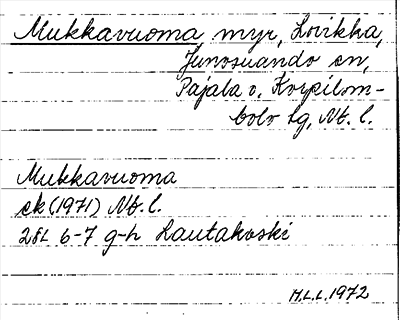 Mukkavuoma myr, Lovikka,
Junosuando sn,
Pajala o. Korpilom-
bolo tg, Nb. l.
Mukkavuoma
ek (1971) Nb. l.
28L 6-7 g-h Lautakoski
H.L.L. 1972